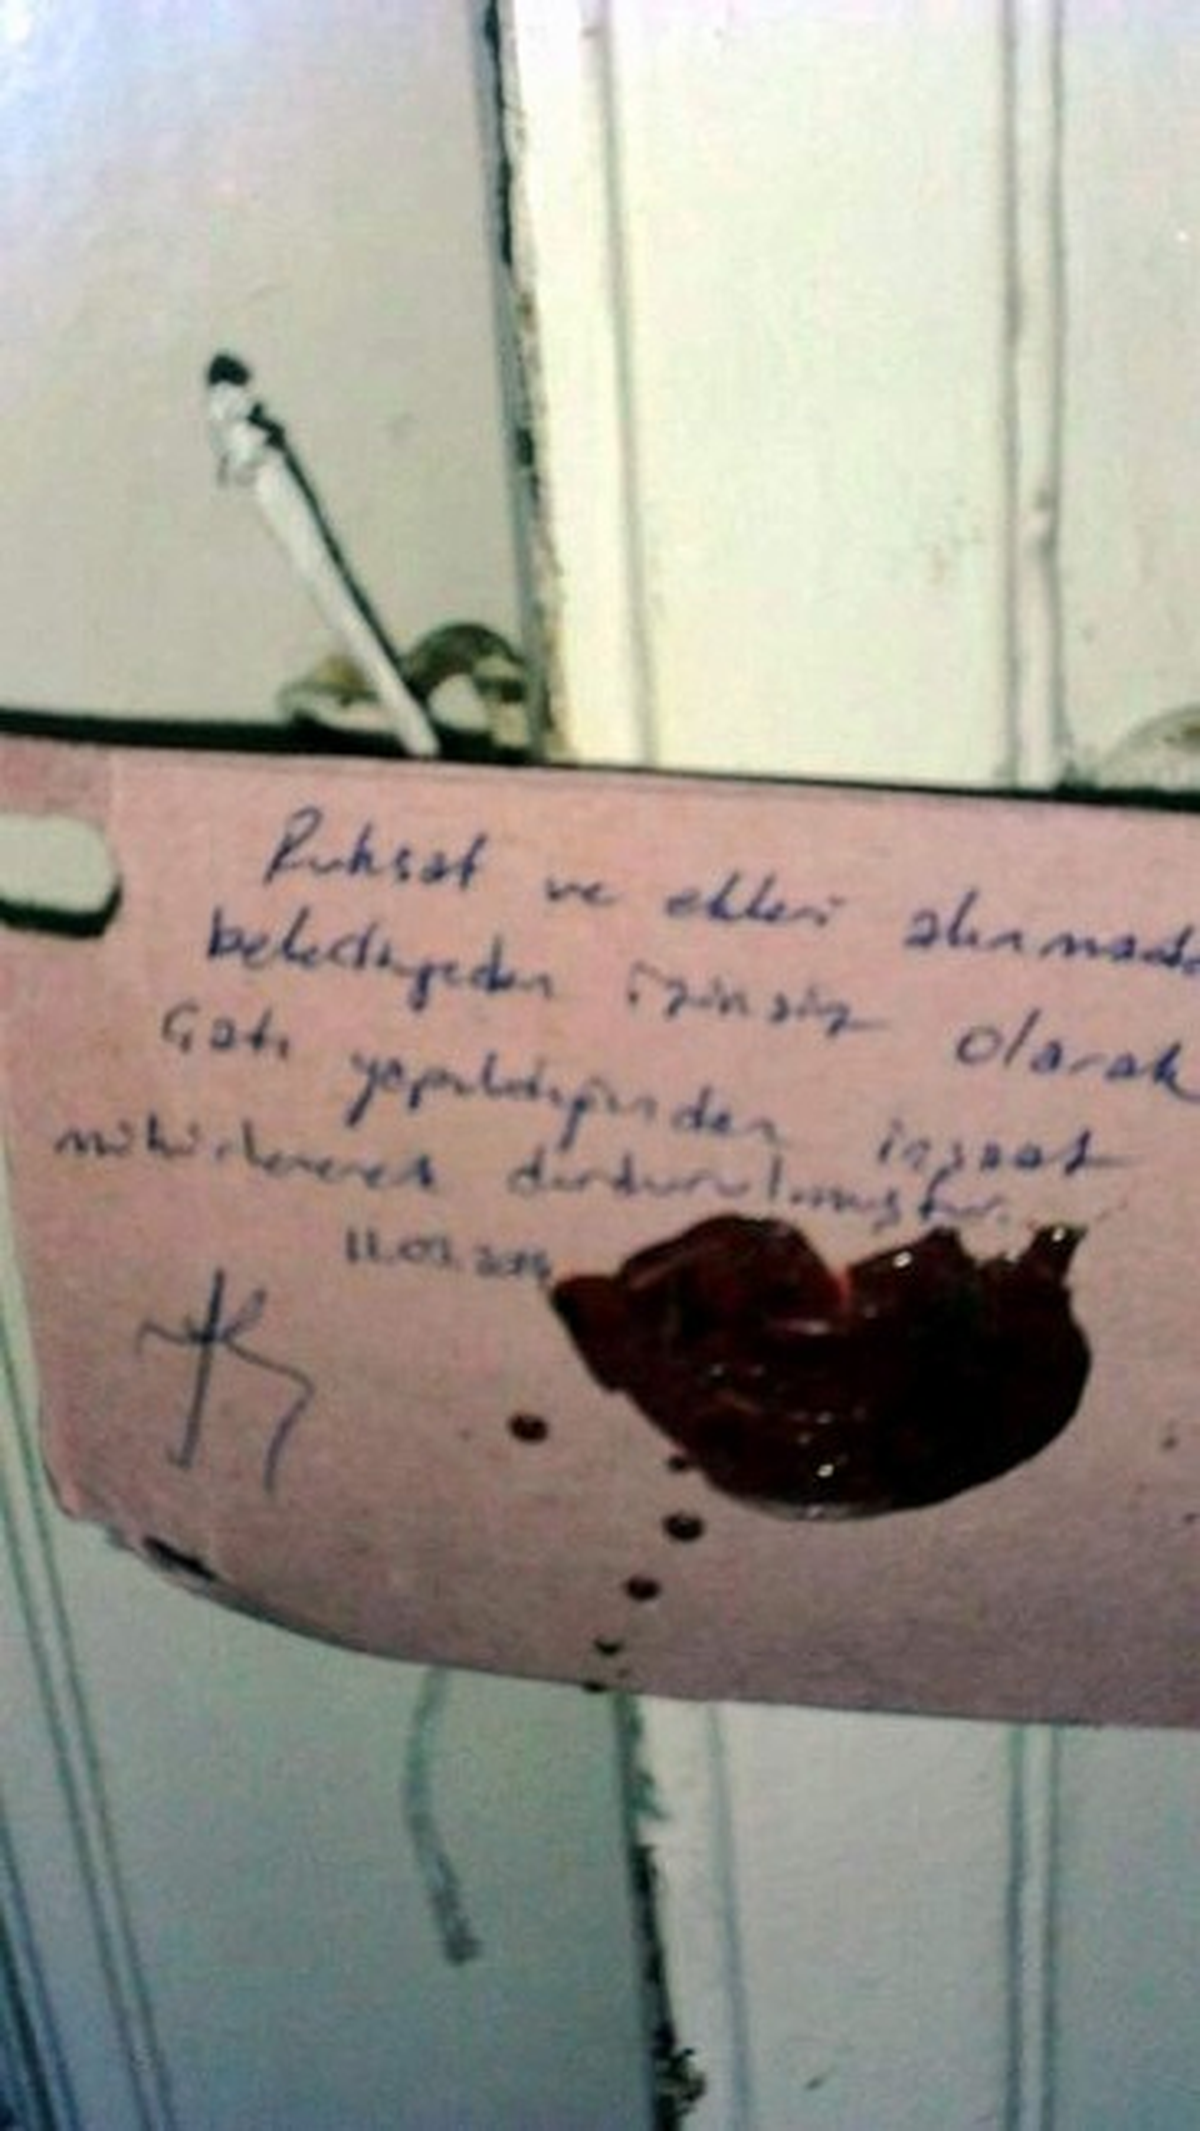 Ruhsat ve ekleri alınmada
belediyeden izinsiz olarak
Çatı yapıldığından inşaat
mühürlenerek durdurulmuştur.